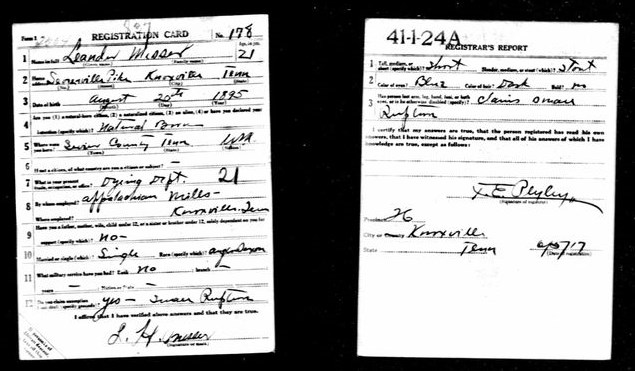 Form 1
REGISTRATION CARD
No. 178
1 Name in full Leander Messer
Age, in yrs. 21
2 Home address Sevierville Pike Knoxville Tenn
3 Date of birth August 20th 1895
4 Are you (1) a natural-born citizen, (2) a naturalized citizen, (3) an alien, (4) or have you declared your
intention (specify which)? Natural Born
5 Where were you born? Sevier County Tenn
6 If not a citizen, of what country are you a citizen or subject? -
7 What is your present trade, occupation, or office? Dying Dept. 21
8 By whom employed? Appalachian Mills -
Where employed? Knoxville Tenn
9 Have you a father, mother, wife, child under 12, or a sister or brother under 12, solely dependent on you for
support (specify which)? no -
10 Married or single (which)? Single Race (specify which)?
11 What military service have you had? Rank no branch -
years - Nation or State -
12 Do you claim exemption from draft (specify grounds)? Yes -
I affirm that I have verified above answers and that they are true.
L. H. Messer
41-1-24A
REGISTRAR'S REPORT
1 Tall, medium, or short (specify which)? Short Slender, medium, or stout (which)? Stout
2 Color of eyes? Blue Color of hair? Dark Bald? no
3 Has person lost arm, leg, hand, foot, or both eyes, or is he otherwise disabled (specify)?
I certify that my answers are true, that the person registered has read his own
answers, that I have witnessed his signature, and that all of his answers of which I have
knowledge are true, except as follows:
(Signature of registrar)
Precinct 26
City or County Knoxville
State Tenn
(Date of registration)